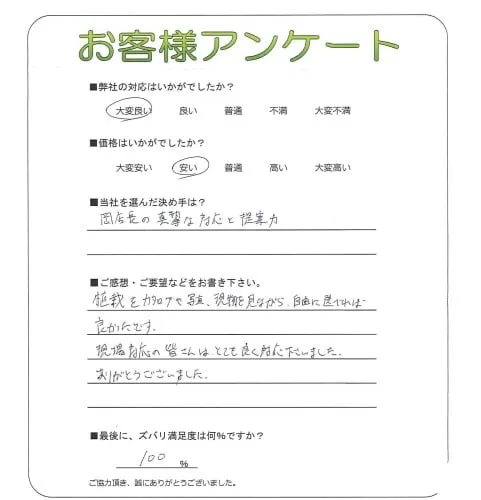 お客様アンケート
■弊社の対応はいかがでしたか？
大変良い 良い 普通 不満 大変不満
■価格はいかがでしたか？
大変安い 安い 普通 高い 大変高い
■当社を選んだ決め手は？
岡店長の真摯な対応と提案力
■ご感想・ご要望などをお書き下さい。
植栽をカタログや写真、現物を見ながら、自由に選べれば
良かったです。
現場対応の皆さんはとても良く対応下さいました。
ありがとうございました。
■最後に、ズバリ満足度は何％ですか？
100 ％
ご協力頂き、誠にありがとうございました。